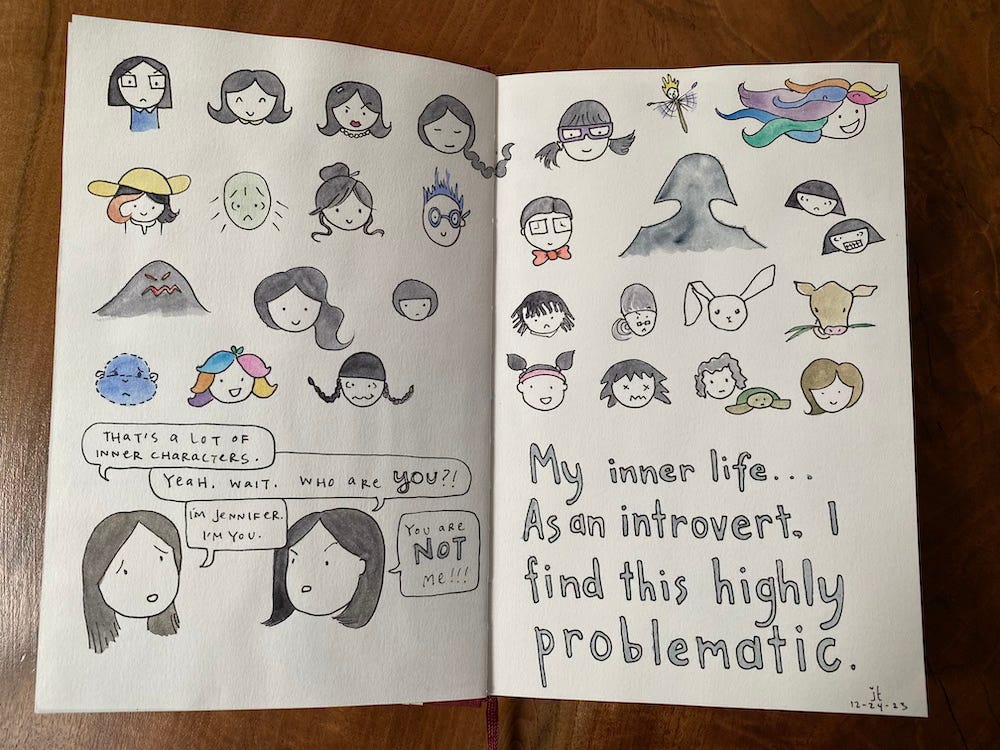 THAT'S A LOT OF
INNER CHARACTERS.
YEAH. WAIT. WHO ARE YOU?!
I'M JENNIFER.
I'M YOU.
YOU ARE
NOT
ME!!!
My inner life...
As an introvert, I
find this highly
problematic.
jt
12-24-23